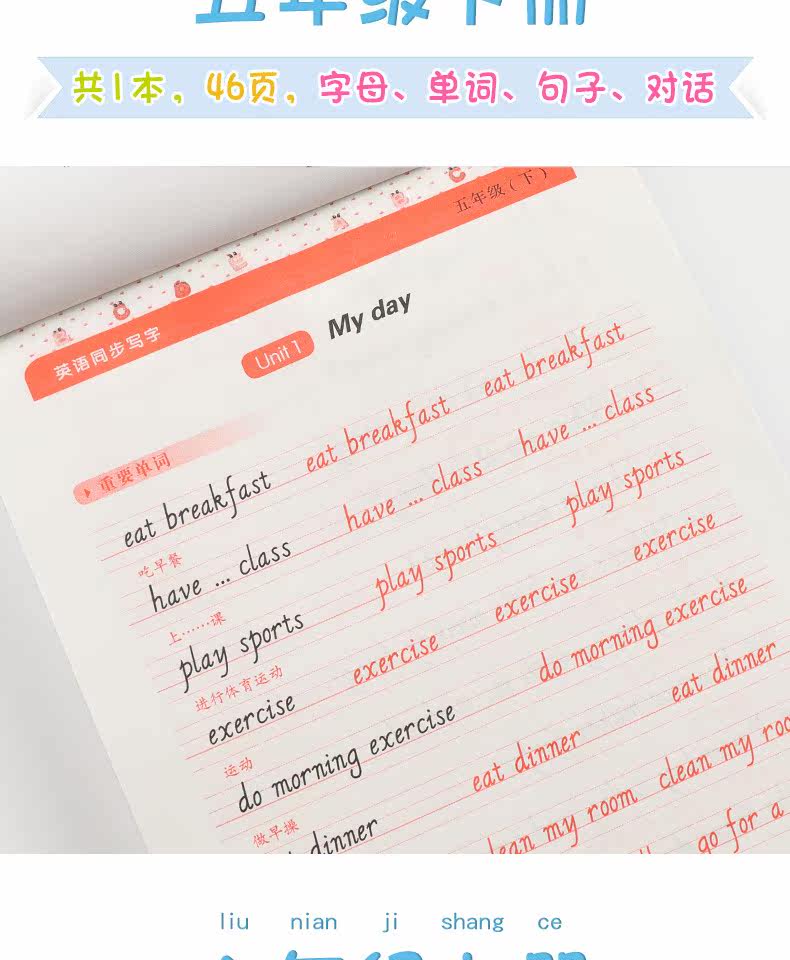 五年级下册
共1本，46页，字母、单词、句子、对话
五年级（下）
英语同步写字
Unit 1 My day
重要单词
eat breakfast eat breakfast eat breakfast
吃早餐
have ... class have ... class have ... class
上……课
play sports play sports play sports
进行体育运动
exercise exercise exercise exercise
运动
do morning exercise do morning exercise
做早操
dinner eat dinner eat dinner
clean my room clean my roo
go for a
liu nian ji shang ce
六年级上册